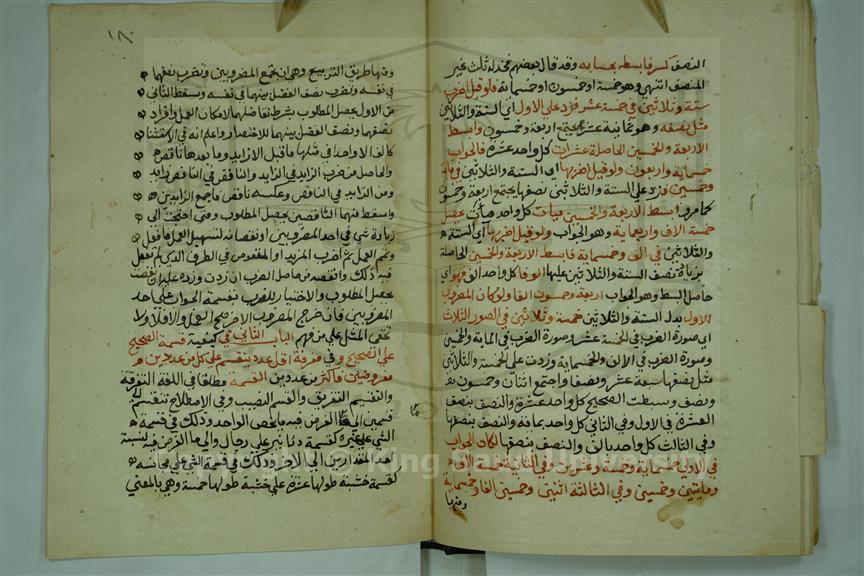 النصف كسر فابسطه بحسابه وقد قال بعضهم فخذ له ثلث غير
المنصف انتهى وهو خمسة او خمسون او خمسماية فلو قيل اضرب
ستة وثلاثين في خمسة عشر فزد على الاول اي الستة والثلاثين
مثل نصفه وهو ثمانية عشر يجتمع اربعة وخمسون وابسط
الاربعة والخمسين الحاصلة عشرات كل واحد عشرة فالجواب
خمسماية واربعون ولو قيل اضربها اي الستة والثلاثين في ماية
وخمسين فزد على الستة والثلاثين نصفها يجتمع اربعة وخمسون
كما مر وابسط الاربعة والخمسين مئات كل واحد مأة يحصل
خمسة الاف واربعماية وهو الجواب ولو قيل اضربها اي الستة
والثلاثين في الف وخمسماية فابسط الاربعة والخمسين الحاصلة
بزيادة نصف الستة والثلاثين عليها الوفا كل واحد الف فهو اي
حاصل البسط وهو الجواب اربعة وخمسون الفا ولو كان المضروب
الاول بدل الستة والثلاثين خمسة وثلاثين في الصور الثلاث
اي صورة الضرب في الخمسة عشر وصورة الضرب في الماية والخمسين
وصورة الضرب في الالف والخمسماية وزدت على الخمسة والثلاثين
مثل نصفها سبعة عشر ونصفا واجتمع اثنان وخمسون
ونصف وبسطت الصحيح كل واحد عشرة والنصف بنصف
العشرة في الاول وفي الثاني كل واحد بماية والنصف بنصفها
وفي الثالث كل واحد بالف والنصف بنصفها لكان الجواب
في الاولى خمسماية وخمسة وعشرين وفي الثانية خمسة الاف
ومايتين وخمسين وفي الثالثة اثنين وخمسين الفا وخمسماية
ومنها
١٦٠
ومنها طريق التربيع وهي ان تجمع المضروبين وتضرب نصفها
في نفسه وتضرب نصف الفضل بينهما في نفسه وتسقط الثاني
من الاول يحصل المطلوب بشرط تفاضلهما لامكان العمل وافراد
نصفها ونصف الفضل بينهما للاختصار واعلم انه في الاستثنا
كالف الا واحد في مثلها ما قبل الا زايد وما بعدها ناقص
والحاصل من ضرب الزايد في الزايد والناقص في الناقص زايد
ومن الزايد في الناقص وعكسه ناقص فاجمع الزايدين
واسقط منهما الناقصين يحصل المطلوب ومتى احتجت الى
زيادة شي في احد المضروبين او نقصانه لتسهيل العمل فافعل
وتمم العمل ثم اضرب المزيد او المنقوص في الطرف الذي لم تفعل
فيه ذلك وانقصه من حاصل الضرب ان زدت وزده عليه ان نقصت
يحصل المطلوب والاختبار للضرب بقسمة الجواب على احد
المضروبين فان خرج المضروب الاخر صح العمل والا فلا ولا
تخفى المثل على من فهم الباب الثاني في كيفية قسمة الصحيح
على الصحيح وفي معرفة اقل عدد ينقسم على كل من عددين
مفروضين فاكثر من عددين القسمة مطلقا في اللغة التفرقة
والتقسيم التفريق والقسم النصيب وفي الاصطلاح تنقسم
قسمين الى الغرض فيه ما يخص الواحد وذلك في قسمة
الشي على غيره كقسمة دنانير على رجال والى ما الغرض فيه نسبة
احد المقدارين الى الاخر وذلك في قسمة الشي على مجانسه
كقسمة خشبة طولها عشرة على خشبة طولها خمسة وهي بالمعنى
© King Saud University